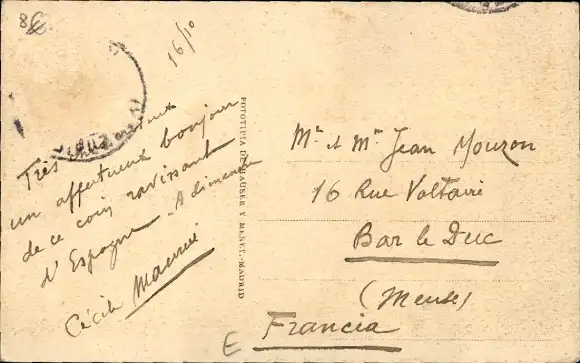 8€
16/10
Très
un affectueux bonjour
de ce coin ravissant
d'Espagne - A dimanche
Cécile Maurice
FOTOTIPIA DE HAUSER Y MENET.-MADRID
Mr et Mme Jean Mouzon
16 Rue Voltaire
Bar le Duc
(Meuse)
E Francia